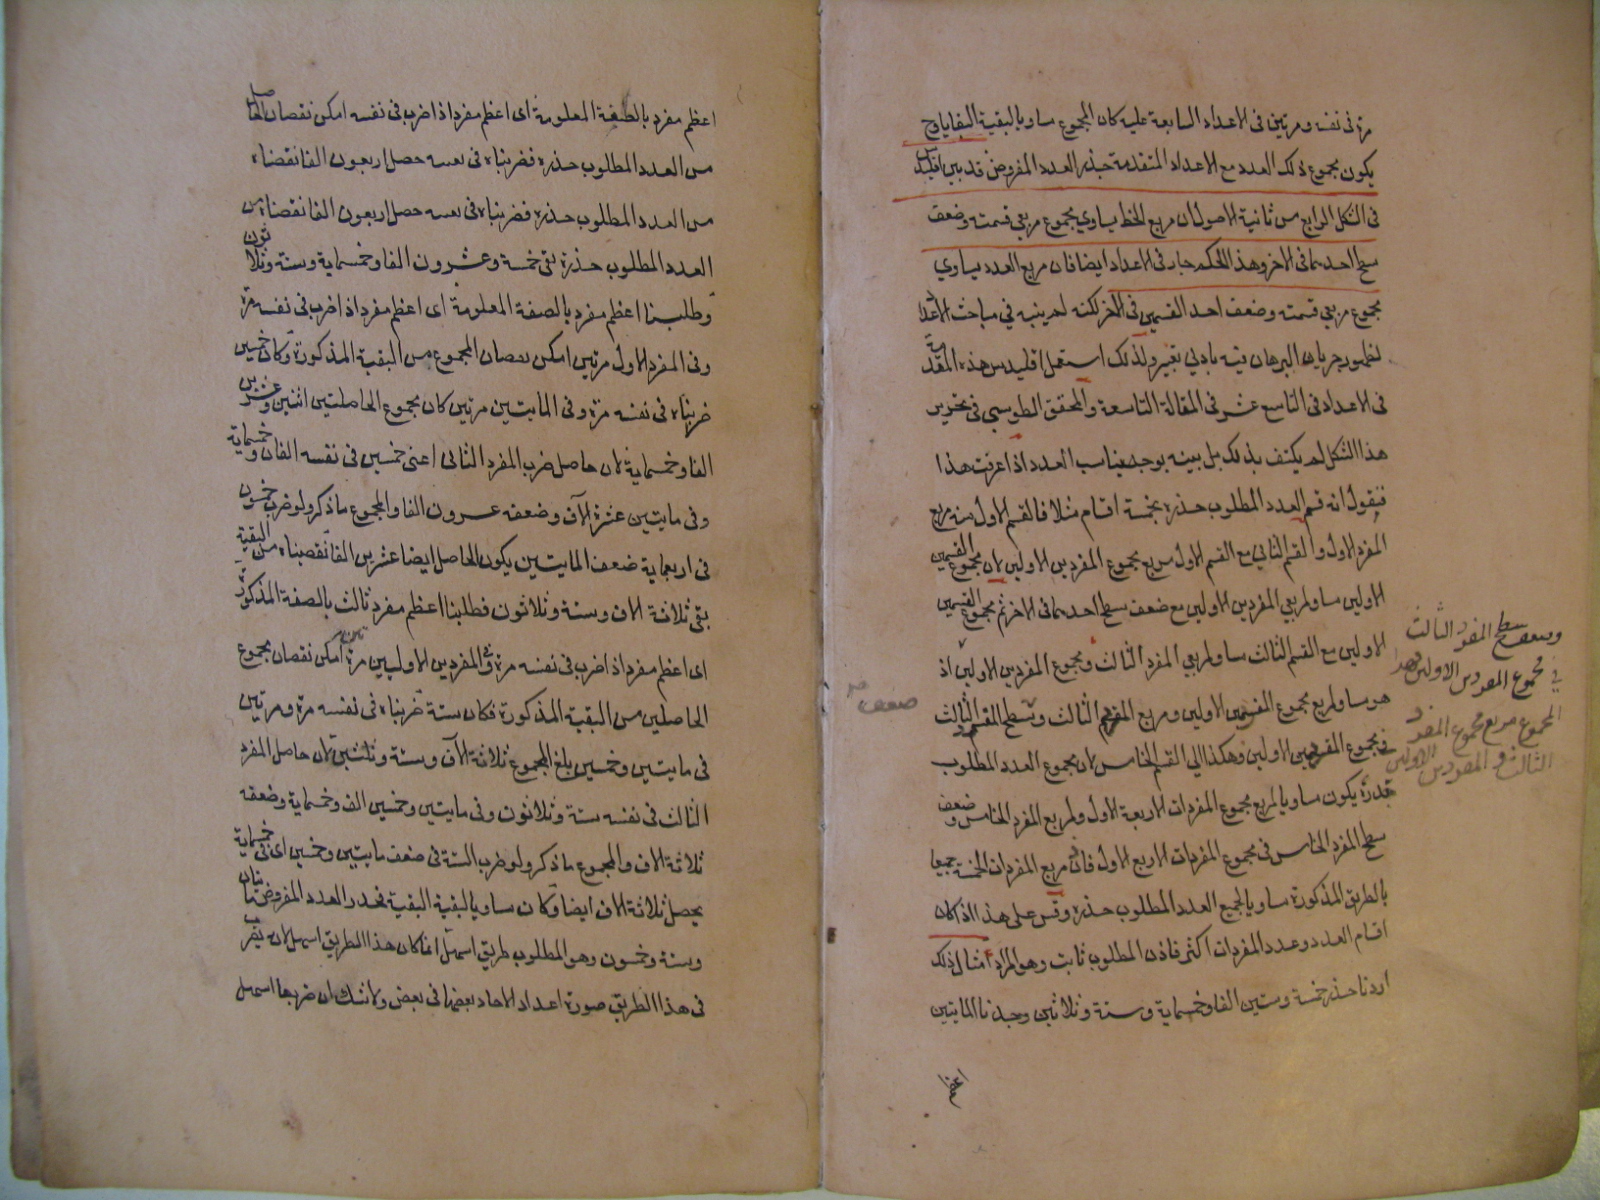 مرة فى نفسه ومرتين فى الاعداد السابعة عليه كان المجموع مساويا لبقية البقايا وح
يكون مجموع ذلك العدد مع الاعداد المتقدمة جذر العدد المفروض قد بين اقليدس
فى الشكل الرابع من ثانية الاصول ان مربع الخط يساوي مجموع مربعى قسمته وضعف
سطح احدهما فى الاخر وهذا الحكم جار فى الاعداد ايضا فان مربع العدد يساوي
مجموع مربعى قسمته وضعف احد القسمين فى الاخر لكنه لم يبينه في مباحث الاعداد
لظهور جريان البرهان فيه بادنى تغيير ولذلك استعمل اقليدس هذه المقدمة
فى الاعداد فى التاسع عشر فى المقالة التاسعة والمحقق الطوسى فى تحرير
هذا الشكل لم يكتف بذلك بل بينه بوجه يناسب العدد اذا عرفت هذا
فنقول انه قسم العدد المطلوب جذره بخمسة اقسام مثلا فالقسم الاول منه مربع
المفرد الاول والقسم الثانى مع القسم الاول مربع مجموع المفردين الاولين لان مجموع القسمين
الاولين مساو لمربعى المفردين الاولين مع ضعف سطح احدهما فى الاخر ثم مجموع القسمين
الاولين مع القسم الثالث مساو لمربعى المفرد الثالث ومجموع المفردين الاولين اذ
هو مساو لمربع مجموع القسمين الاولين ومربع المفرد الثالث وسطح القسم الثالث
فى مجموع المفردين الاولين وهكذا الى القسم الخامس لان مجموع العدد المطلوب
جذره يكون مساويا لمربع مجموع المفردات الاربعة الاول ولمربع المفرد الخامس وضعف
سطح المفرد الخامس فى مجموع المفردات الاربع الاول فاذن مربع المفردات الخمسة جميعا
بالطريق المذكورة مساويا لجميع العدد المطلوب جذره وقس على هذا اذا كان
اقسام العدد وعدد المفردات اكثر فاذن المطلوب ثابت وهو المراد مثال ذلك
اردنا جذر خمسة وستين الفا وخمسماية وستة وثلاثين وجدنا المايتين
وضعف سطح المفرد الثالث
في مجموع المفردين الاولين وهذا
المجموع مربع مجموع المفرد
الثالث والمفردين الاولين
ضعف
اعظم
اعظم مفرد بالطبقة المعلومة اى اعظم مفرد اذا ضرب فى نفسه امكن نقصان الحاصل
من العدد المطلوب جذره فضربناه فى نفسه حصل اربعون الفا نقصناه
من العدد المطلوب جذره فضربناه فى نفسه حصل اربعون الفا نقصناه من
العدد المطلوب جذره بقى خمسة وعشرون الفا وخمسماية وستة وثلاثون
وطلبنا اعظم مفرد بالصفة المعلومة اى اعظم مفرد اذا ضرب فى نفسه مرة
وفى المفرد الاول مرتين امكن نقصان المجموع من البقية المذكورة وكان خمسين
ضربناه فى نفسه مرة وفى المايتين مرتين كان مجموع الحاصلتين اثنين وعشرين
الفا وخمسماية لان حاصل ضرب المفرد الثانى اعنى خمسين فى نفسه الفان وخمسماية
وفى مايتين عشرة الآف وضعفه عشرون الفا والمجموع ما ذكر ولو ضرب خمسون
فى اربعماية ضعف المايتين يكون الحاصل ايضا عشرين الفا نقصناه من البقية
بقى ثلاثة الاف وستة وثلاثون فطلبنا اعظم مفرد ثالث بالصفة المذكورة
اى اعظم مفرد اذا ضرب فى نفسه مرة وفى المفردين الاوليين مرة امكن نقصان مجموع
الحاصلين من البقية المذكورة فكان ستة ضربناه فى نفسه مرة ومرتين
فى مايتين وخمسين بلغ المجموع ثلاثة الآف وستة وثلثين لان حاصل المفرد
الثالث فى نفسه ستة وثلاثون وفى مايتين وخمسين الف وخمسماية وضعفه
ثلاثة الاف والمجموع ما ذكر ولو ضرب الستة فى ضعف مايتين وخمسين اى فى خمسماية
يحصل ثلاثة الاف ايضا وكان مساويا لبقية البقية فجذر العدد المفروض مايتان
وستة وخمسون وهو المطلوب طريق اسهل انما كان هذا الطريق اسهل لانه يضرب
فى هذا الطريق صورة اعداد الاحاد بعضها فى بعض ولا شك ان ضربها اسهل